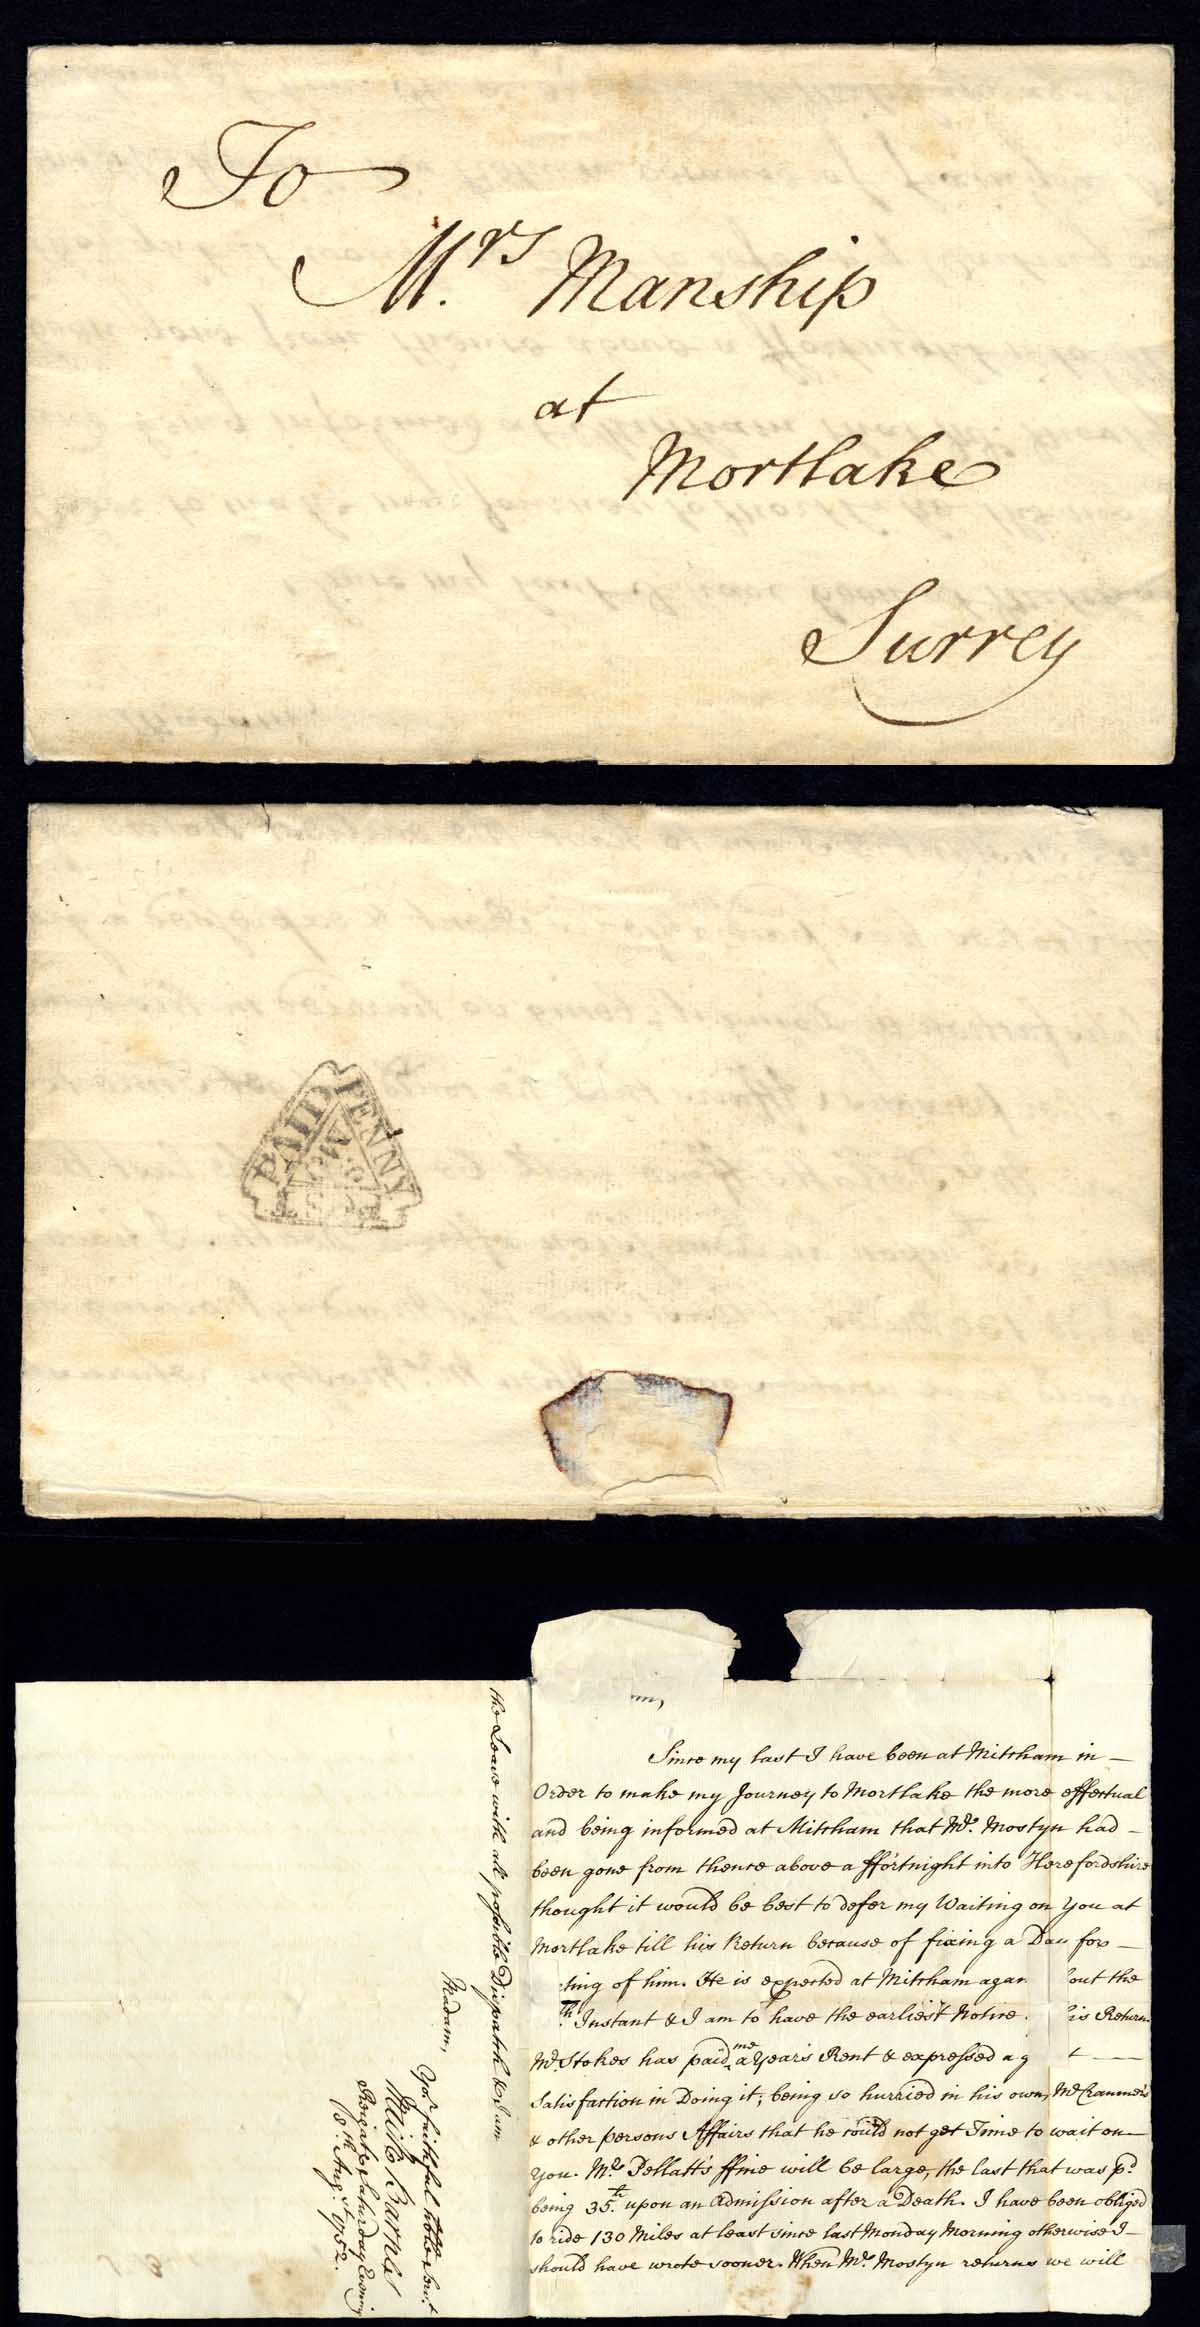 To
Mrs Manship
at
Mortlake
Surrey
PAID
PENNY
POST
Since my last I have been at Mitcham in
Order to make my Journey to Mortlake the more effectual
and being informed at Mitcham that Mr. Mostyn had
been gone from thence above a ffortnight into Herefordshire
thought it would be best to defer my Waiting on You at
Mortlake till his Return because of fixing a Day for
ting of him. He is expected at Mitcham again out the
th. Instant & I am to have the earliest Notice his Return.
Mr. Stokes has paid me a Years Rent & expressed a g t
Satisfaction in Doing it; being so hurried in his own, Mr. Cranmer's
& other persons Affairs that he could not get Time to wait on
You. Mrs Pellatt's ffine will be large, the last that was pd.
being 35 upon an Admission after a Death. I have been obliged
to ride 130 Miles at least since last Monday Morning otherwise I
should have wrote sooner. When Mr. Mostyn returns we will
the Leave with all possible Dispatch & I am
Madam,
Yor. faithful hble servt.
Barnes
Reigate Saturday Evening
Augst. 1752.